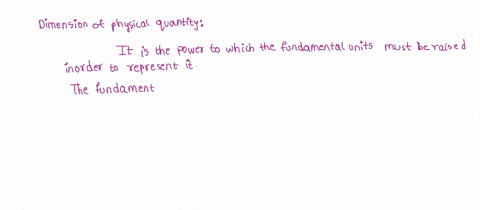 Dimension of physical quantity:
It is the power to which the fundamental units must be raised
inorder to represent it.
The fundament